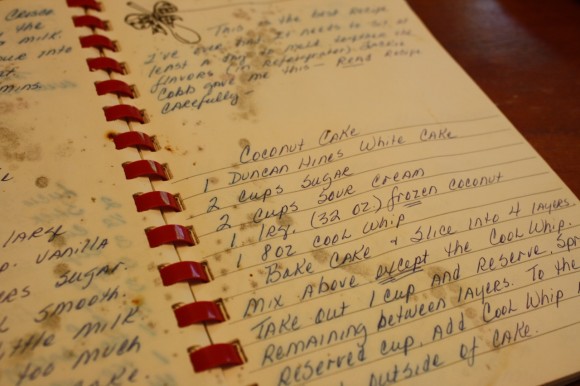 CREAM
THE
MILK.
OUR INTO
MINS
This is the best Recipe
I've ever had. It needs to sit at
least a day to meld together the
flavors (in Refrigerator).
Cobb gave me this - READ Recipe
CAREFULLY -
Coconut Cake
1 Duncan Hines White Cake
2 cups Sugar
2 cups Sour Cream
1 lrg. (32 oz.) frozen coconut
1 8oz cool whip
Bake Cake + Slice into 4 layers.
Mix Above except the Cool Whip.
Take out 1 cup and Reserve. Spr
Remaining between layers. To the
Reserved cup, Add Cool Whip
outside of cake.
LARY
P. VANILLA
RS SUGAR
SMOOTH.
LITTLE MILK
TOO MUCH
CAKE.